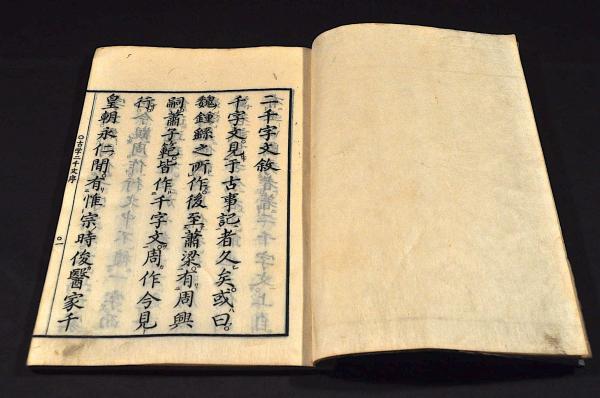 二千字文敘
千字文見于古事記者久矣或曰
魏鍾繇之所作後至蕭梁有周興
嗣蕭子範皆作千字文周作今見
行
皇朝永仁間有惟宗時俊醫家千
○古字二千文序
○一